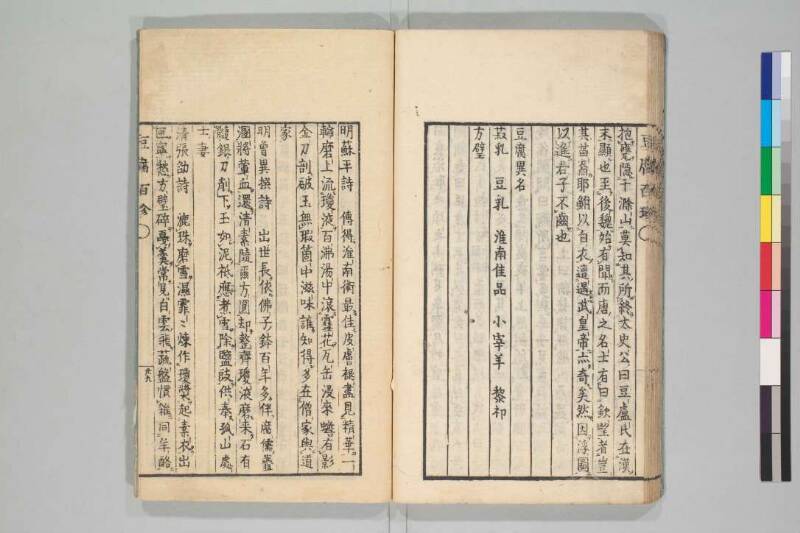 抱甕隱于滁山莫知其所終太史公曰豆盧氏在漢
末顯也至後魏始有聞而唐之名士有曰欽望者豈
其苗裔耶鮒以白衣遭遇武皇帝亦奇矣然因浮圖
以進君子不齒也
豆腐異名
菽乳 豆乳 淮南佳品 小宰羊 黎祁
方璧
明蘇平詩 傳得淮南術最佳皮膚褪盡見精華一
輪磨上流瓊液百沸湯中滾雪花瓦缶浸來蟾有影
金刀剖破玉無瑕箇中滋味誰知得多在僧家與道
家
明曾異撰詩 出世長依佛子鉢百年多伴腐儒
將葷血還清素隨爾方圓却整齊瓊液磨來石有
髓銀刀削下玉如泥祗應煮雪除鹽豉供奉孤山處
士妻
清張劭詩 漉珠磨雪濕霏〻煉作瓊漿起素衣出
匣寧愁方璧碎憂羹常見白雲飛蔬盤慣雜同羊酪
豆腐百珍